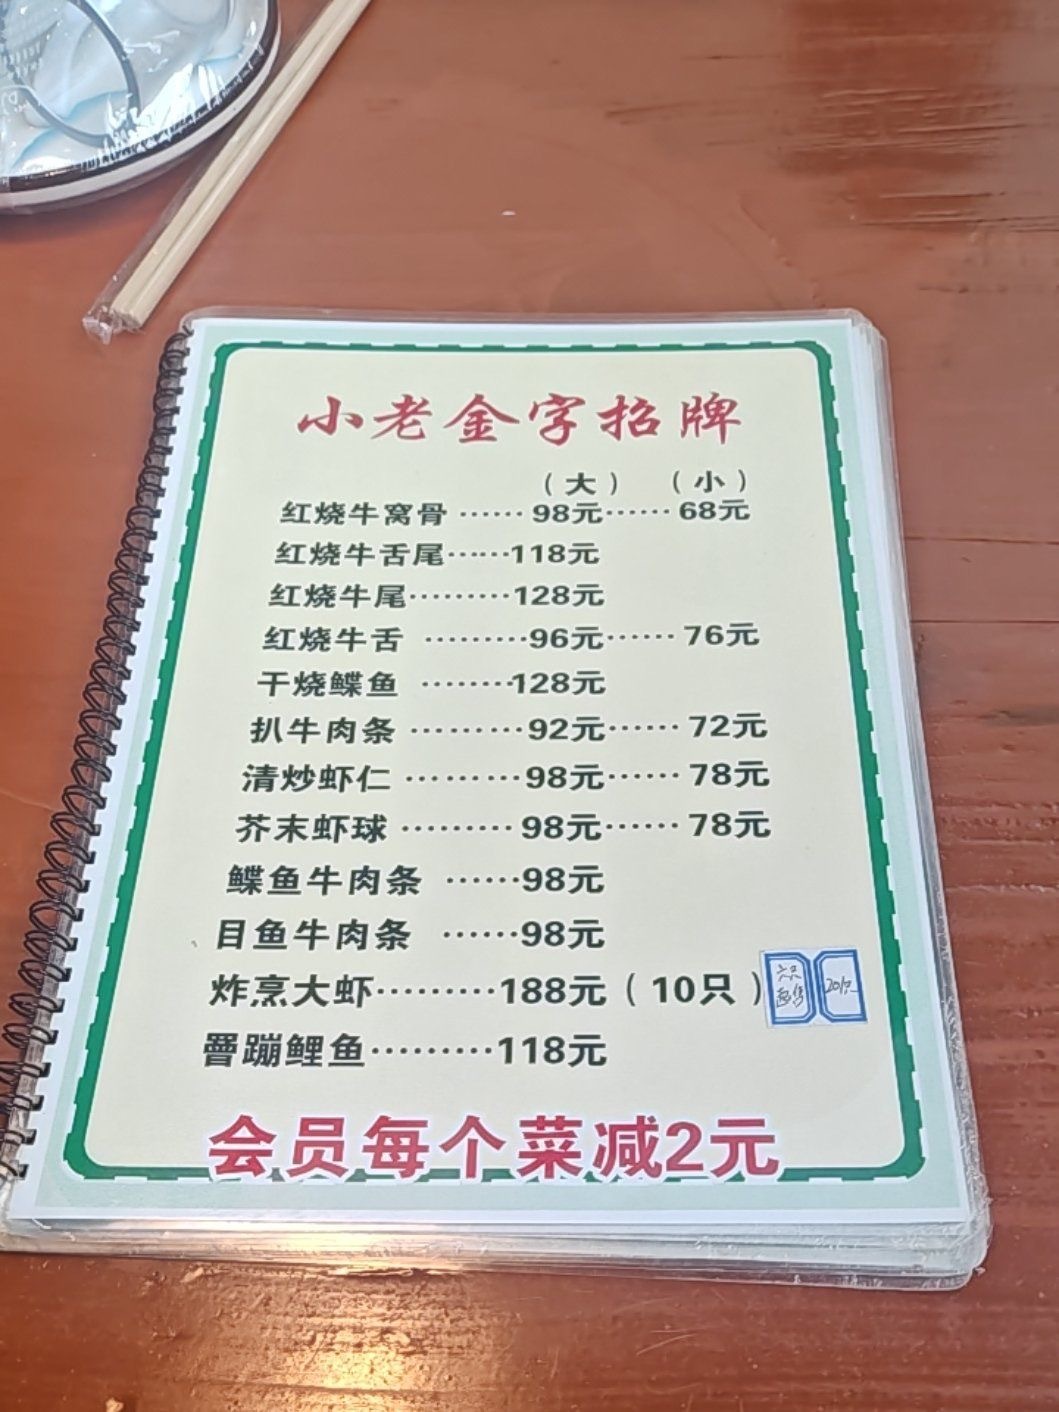 小老金字招牌
（大） （小）
红烧牛窝骨……98元……68元
红烧牛舌尾……118元
红烧牛尾………128元
红烧牛舌………96元……76元
干烧鲽鱼………128元
扒牛肉条………92元……72元
清炒虾仁………98元……78元
芥末虾球………98元……78元
鲽鱼牛肉条……98元
目鱼牛肉条……98元
炸烹大虾………188元（10只）
六只
起售
20/只
罾蹦鲤鱼………118元
会员每个菜减2元